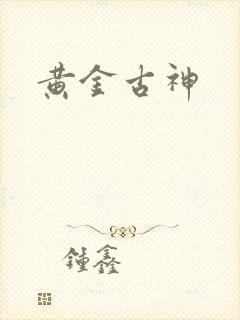 黄金古神
鍾鑫